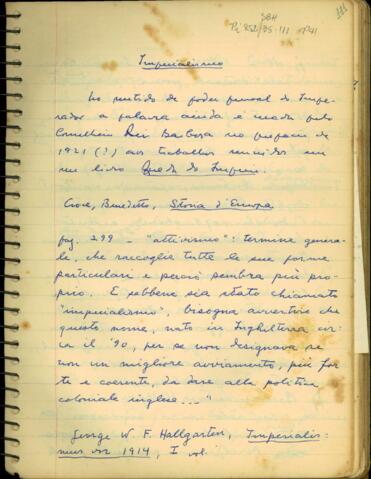 111
SBH
Pi 852/95-111 P41
Imperialismo
No sentido de poder pessoal do Impe-
rador a palavra ainda é usada pelo
Conselheiro Rui Barbosa no prefacio de
1921 (?) aos trabalhos reunidos em
seu livro Queda do Imperio.
Croce, Benedetto, Storia d'Europa
pag. 299 - "attivismo": termine genera-
le, che raccoglie tutte le sue forme
particulari e perciò sembra più pro-
prio. E sebbene sia stato chiamato
"imperialismo", bisogna avvertire che
questo nome, nato in Inghilterra cir-
ca il '90, per se non designava se
non un migliore avviamento, più for-
te e coerente, da dare alla politica
coloniale inglese..."
George W. F. Hallgarten, Imperialis-
mus vor 1914, I vol.